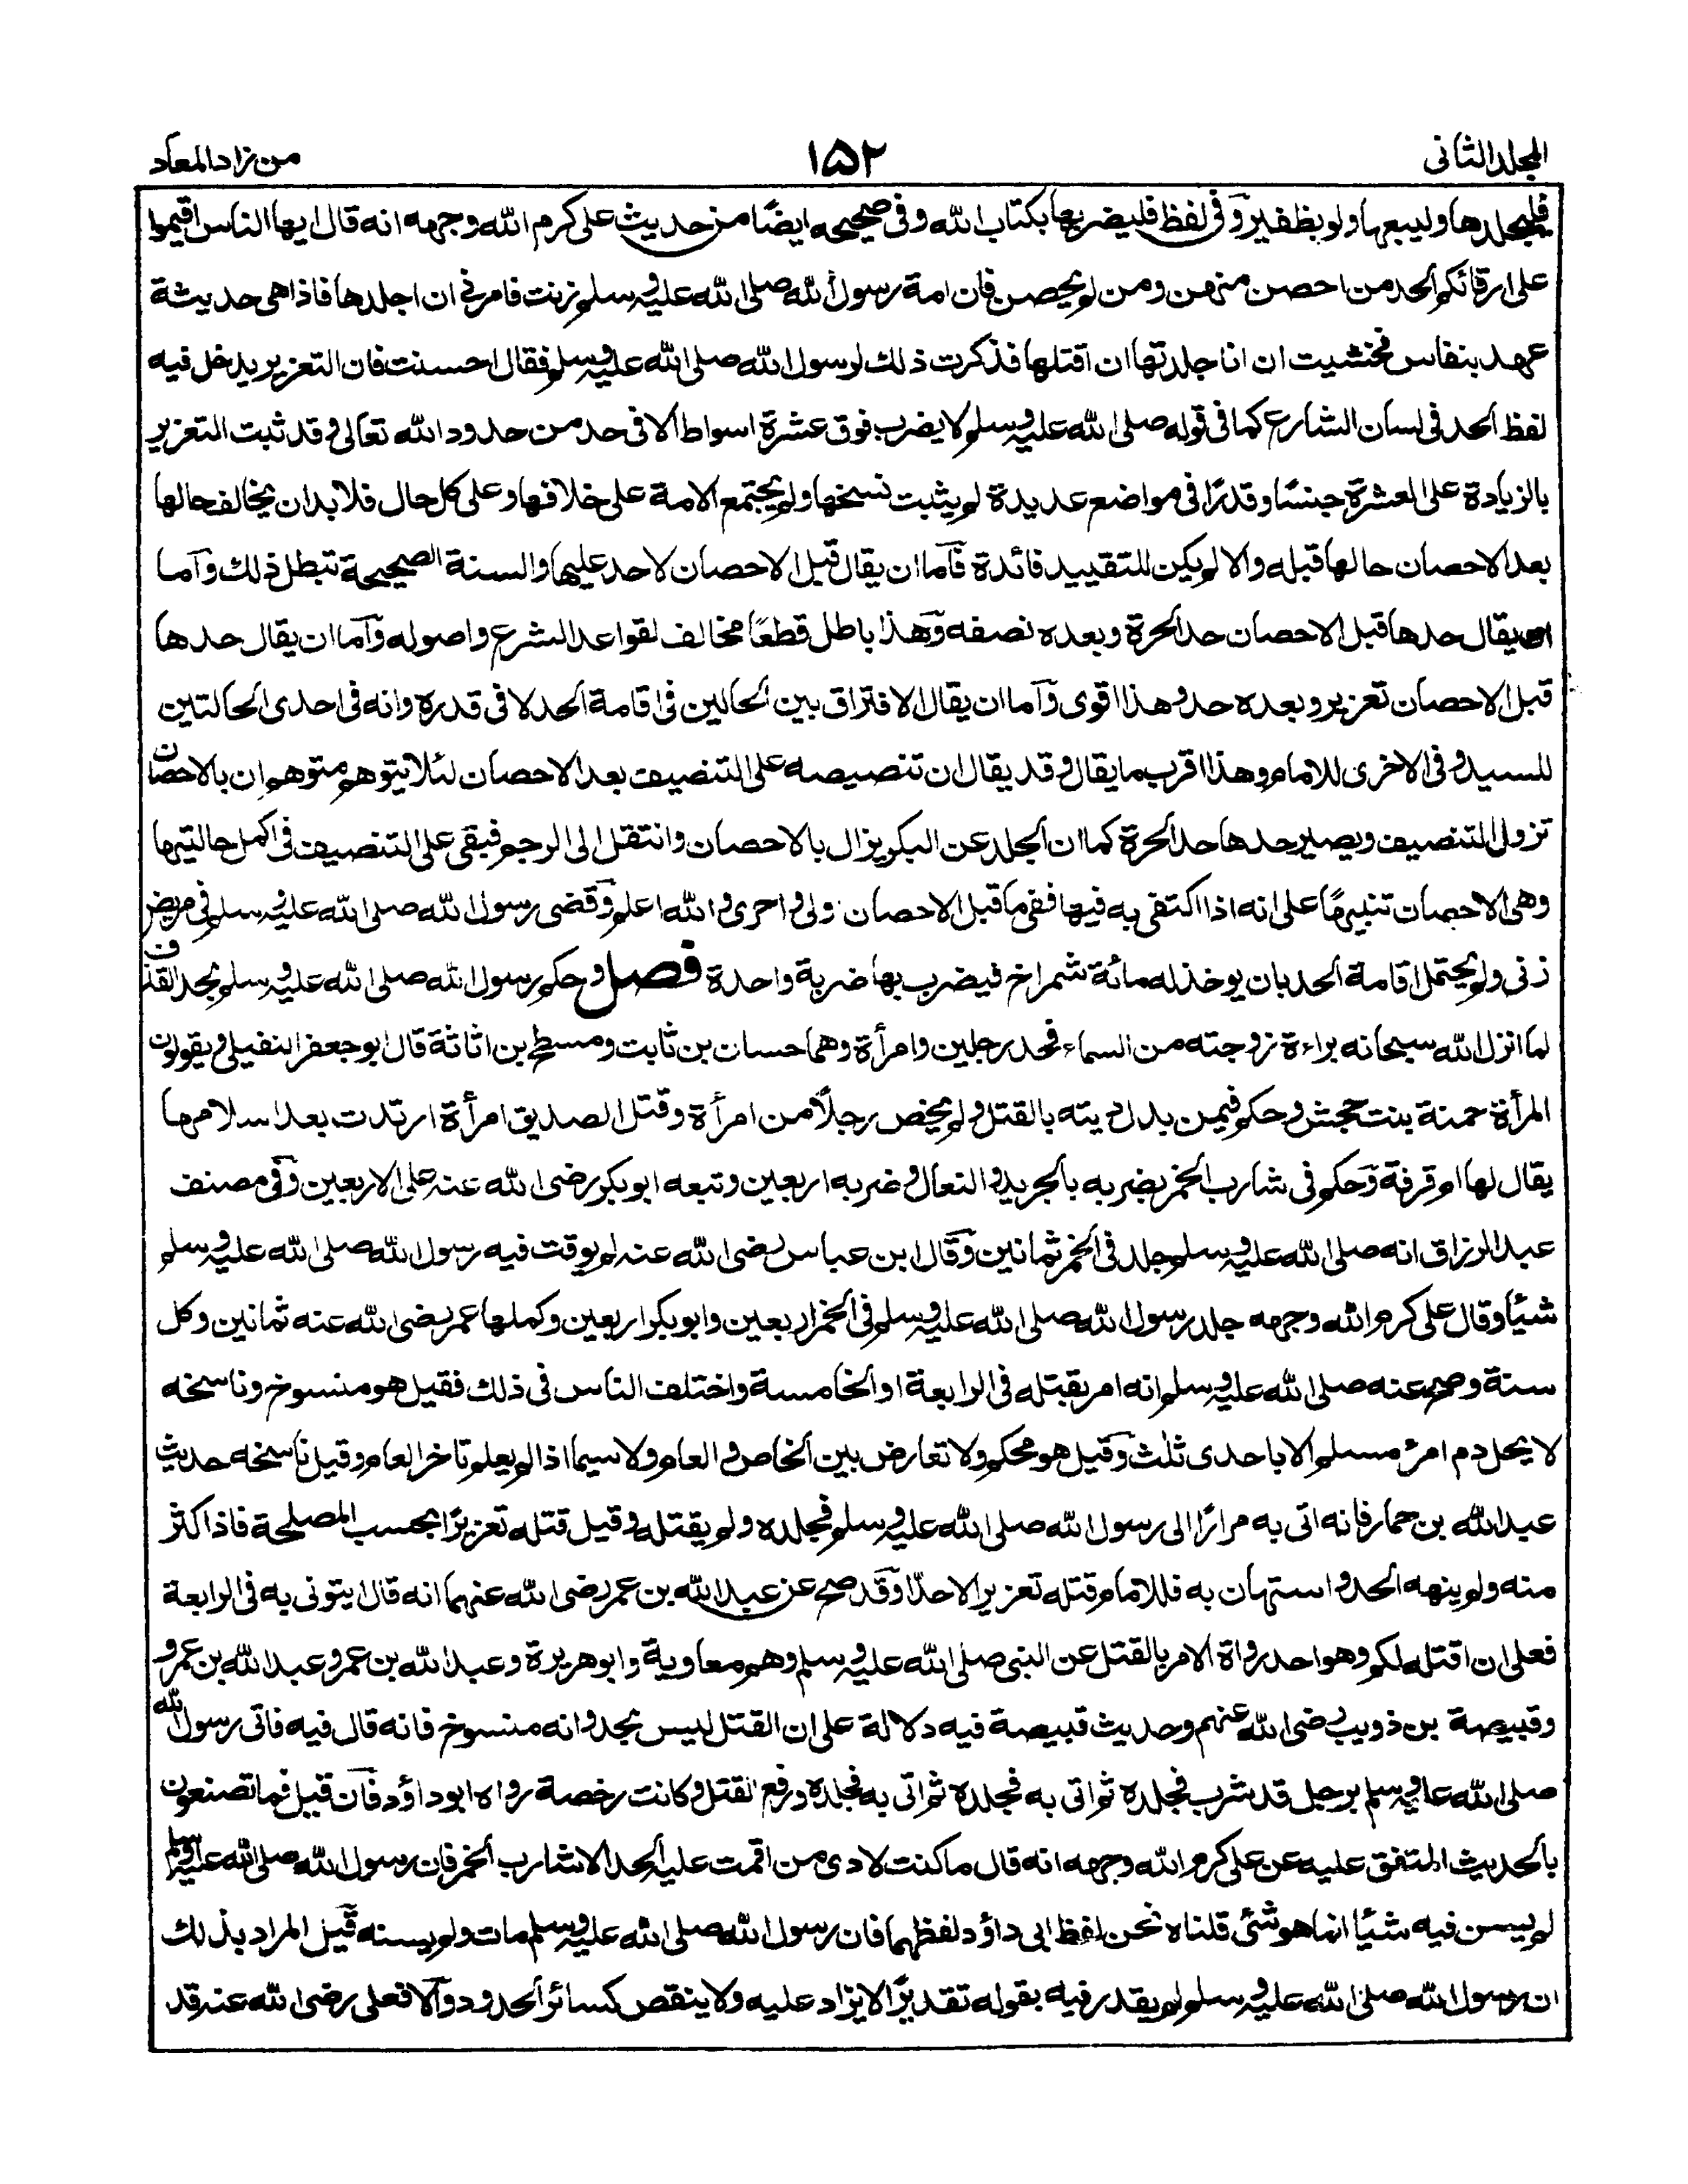 المجلد الثانی ۱۵۲ من زاد المعاد
فلیجلدها ولیبعها ولو بظفیر وفی لفظ فلیضربها بکتاب الله وفی صحیحه ایضًا من حدیث علی کرم الله وجهه انه قال ایها الناس اقیموا
علی ارقائکم الحد من احصن منهن ومن لم یحصن فان امة رسول الله صلی الله علیه وسلم زنت فامرنی ان اجلدها فاذا هی حدیثة
عهد بنفاس فخشیت ان انا جلدتها ان اقتلها فذکرت ذلك لرسول الله صلی الله علیه وسلم فقال احسنت فان التعزیر یدخل فیه
لفظ الحد فی لسان الشارع کما فی قوله صلی الله علیه وسلم لا یضرب فوق عشرة اسواط الا فی حد من حدود الله تعالی وقد ثبت التعزیر
بالزیادة علی العشرة جنسًا وقدرًا فی مواضع عدیدة لم یثبت نسخها ولم یجتمع الامة علی خلافها وعلی کل حال فلا بد ان یخالف حالها
بعد الاحصان حالها قبله والا لم یکن للتقیید فائدة فاما ان یقال قبل الاحصان لا حد علیها والسنة الصحیحة تبطل ذلك واما
ان یقال حدها قبل الاحصان حد الحرة وبعده نصفه وهذا باطل قطعًا مخالف لقواعد الشرع واصوله واما ان یقال حدها
قبل الاحصان تعزیر وبعده حد وهذا اقوی واما ان یقال الافتراق بین الحالین فی اقامة الحد لا فی قدره وانه فی احدی الحالتین
للسید وفی الاخری للامام وهذا اقرب ما یقال وقد یقال ان تنصیصه علی التنصیف بعد الاحصان لئلا یتوهم متوهم ان بالاحصان
تزول التنصیف ویصیر حدها حد الحرة کما ان الجلد عن البکر یزال بالاحصان وانتقل الی الرجم فبقی علی التنصیف فی اکمل حالتیها
وهی الاحصان تنبیهًا علی انه اذا اکتفی به فیها ففی ما قبل الاحصان اولی واحری والله اعلم وقضی رسول الله صلی الله علیه وسلم فی مریض
زنی ولم یحتمل اقامة الحد بان یوخذ له مائة شمراخ فیضرب بها ضربة واحدة فصل وحکم رسول الله صلی الله علیه وسلم بحد القذف
لما انزل الله سبحانه براءة زوجته من السماء فحد رجلین وامرأة وهما حسان بن ثابت ومسطح بن اثاثة قال ابو جعفر النفیلی ویقولون
المرأة حمنة بنت جحش وحکم فیمن بدل دینه بالقتل ولم یخص رجلًا من امرأة وقتل الصدیق امرأة ارتدت بعد اسلامها
یقال لها ام قرفة وحکم فی شارب الخمر بضربه بالجرید والنعال وضربه اربعین وتبعه ابو بکر رضی الله عنه علی الاربعین وفی مصنف
عبد الرزاق انه صلی الله علیه وسلم جلد فی الخمر ثمانین وقال ابن عباس رضی الله عنه لم یوقت فیه رسول الله صلی الله علیه وسلم
شیئًا وقال علی کرم الله وجهه جلد رسول الله صلی الله علیه وسلم فی الخمر اربعین وابو بکر اربعین وکملها عمر رضی الله عنه ثمانین وکل
سنة وصح عنه صلی الله علیه وسلم انه امر بقتله فی الرابعة او الخامسة واختلف الناس فی ذلك فقیل هو منسوخ وناسخه
لا یحل دم امرئ مسلم الا باحدی ثلث وقیل هو محکم ولا تعارض بین الخاص والعام ولا سیما اذا لم یعلم تاخر العام وقیل ناسخه حدیث
عبد الله بن حمار فانه اتی به مرارًا الی رسول الله صلی الله علیه وسلم فجلده ولم یقتله وقیل قتله تعزیرًا بحسب المصلحة فاذا کثر
منه ولم ینهه الحد واستهان به فللامام قتله تعزیرا لا حدًا وقد صح عن عبد الله بن عمر رضی الله عنهما انه قال ایتونی به فی الرابعة
فعلی ان اقتله لکم وهو احد رواة الامر بالقتل عن النبی صلی الله علیه وسلم وهم معاویة وابو هریرة وعبد الله بن عمر وعبد الله بن عمرو
وقبیصة بن ذویب رضی الله عنهم وحدیث قبیصة فیه دلالة علی ان القتل لیس بحد وانه منسوخ فانه قال فیه فاتی رسول الله
صلی الله علیه وسلم برجل قد شرب فجلده ثم اتی به فجلده ثم اتی به فجلده ورفع القتل وکانت رخصة رواه ابو داؤد فان قیل فما تصنعون
بالحدیث المتفق علیه عن علی کرم الله وجهه انه قال ما کنت لادی من اقمت علیه الحد الا شارب الخمر فان رسول الله صلی الله علیه وسلم
لم یسن فیه شیئًا انما هو شئ قلناه نحن لفظ ابی داؤد ولفظهما فان رسول الله صلی الله علیه وسلم مات ولم یسنه قیل المراد بذلك
ان رسول الله صلی الله علیه وسلم لم یقدر فیه بقوله تقدیرًا لا یزاد علیه ولا ینقص کسائر الحدود والا فعلی رضی الله عنه قد